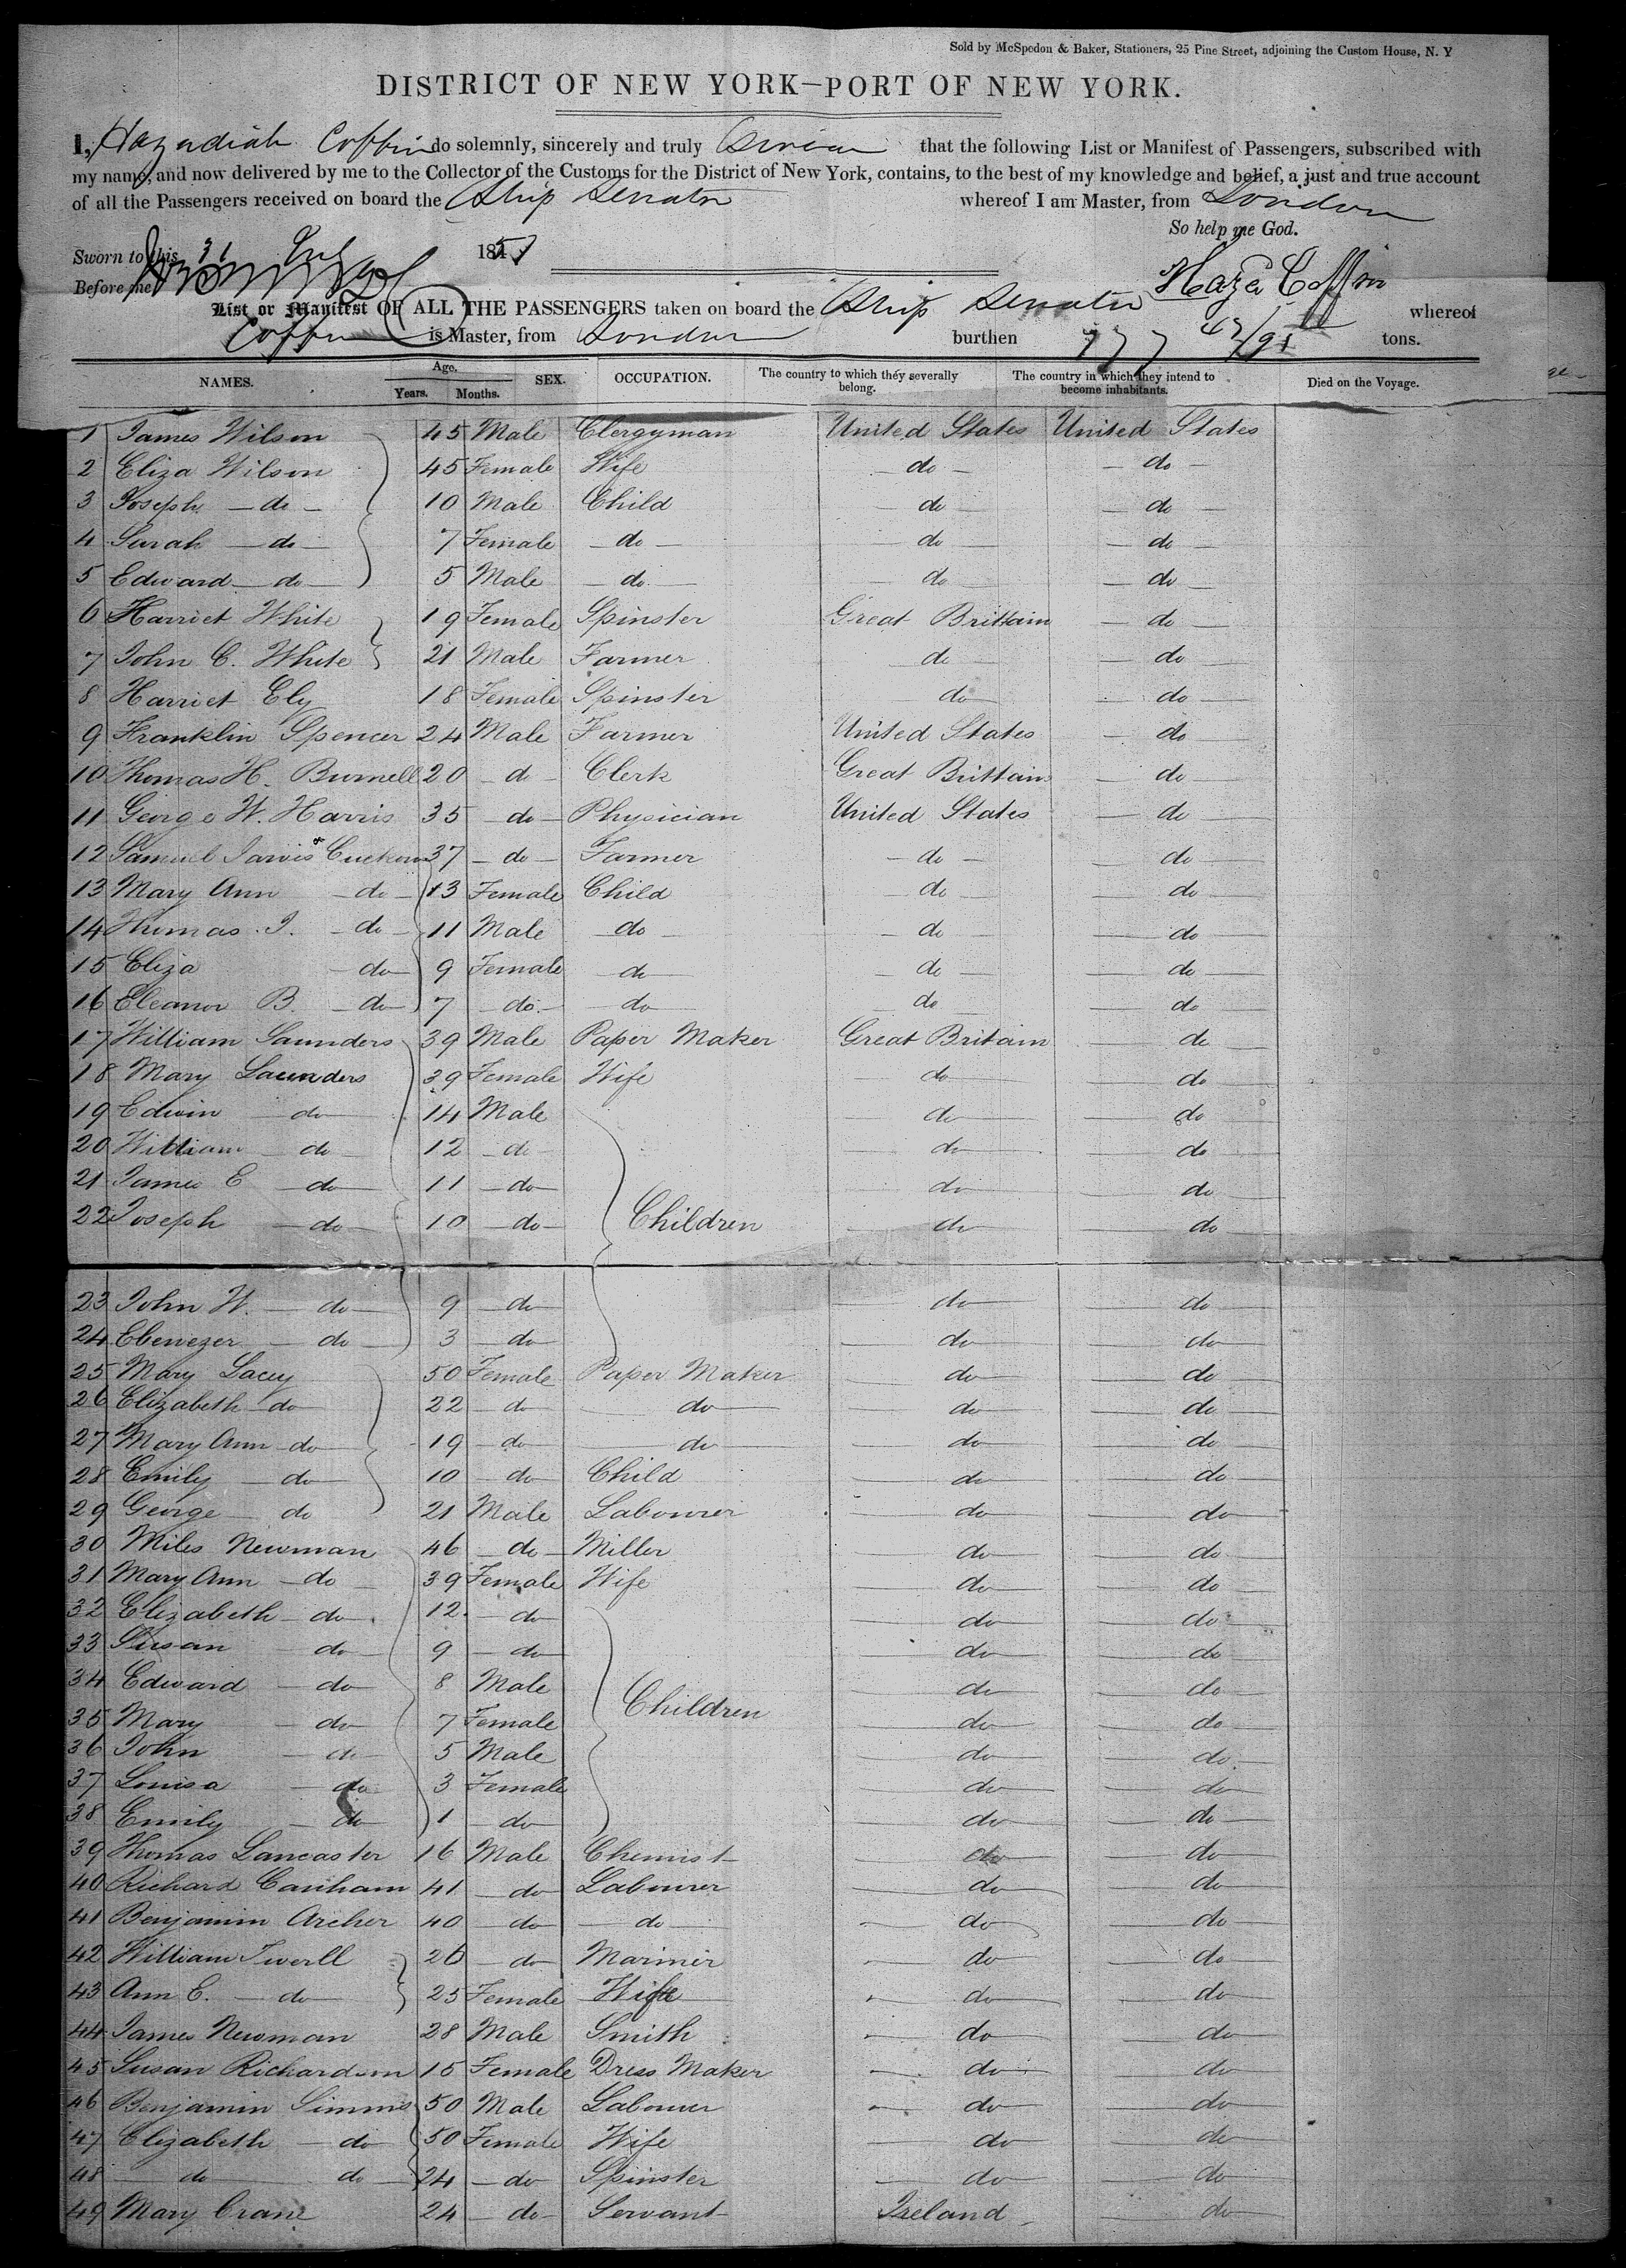 Sold by McSpedon & Baker, Stationers, 25 Pine Street, adjoining the Custom House, N. Y
DISTRICT OF NEW YORK—PORT OF NEW YORK.
I, Hazadiah Coffin do solemnly, sincerely and truly Swear that the following List or Manifest of Passengers, subscribed with
my name, and now delivered by me to the Collector of the Customs for the District of New York, contains, to the best of my knowledge and belief, a just and true account
of all the Passengers received on board the Ship Senator whereof I am Master, from London
So help me God.
Sworn to this 31 July 1851
Before me Haza Coffin
List or Manifest OF ALL THE PASSENGERS taken on board the Ship Senator whereof
Coffin is Master, from London burthen 777 42/95 tons.
NAMES. Age. Years. Months. SEX. OCCUPATION. The country to which they severally belong. The country in which they intend to become inhabitants. Died on the Voyage.
1 James Wilson 45 Male Clergyman United States United States
2 Eliza Wilson 45 Female Wife do do
3 Joseph do 10 Male Child do do
4 Sarah do 7 Female do do do
5 Edward do 5 Male do do do
6 Harriet White 19 Female Spinster Great Brittain do
7 John C. White 21 Male Farmer do do
8 Harriet Ely 18 Female Spinster do do
9 Franklin Spencer 24 Male Farmer United States do
10 Thomas H. Burnell 20 do Clerk Great Brittain do
11 George W. Harris 35 do Physician United States do
12 Samuel Jarvis Cuckow 37 do Farmer do do
13 Mary Ann do 13 Female Child do do
14 Thomas J. do 11 Male do do do
15 Eliza do 9 Female do do do
16 Eleanor B. do 7 do do do do
17 William Saunders 39 Male Paper Maker Great Britain do
18 Mary Saunders 39 Female Wife do do
19 Edwin do 14 Male do do
20 William do 12 do do do
21 James E do 11 do do do
22 Joseph do 10 do Children do do
23 John W. do 9 do do do
24 Ebenezer do 3 do do do
25 Mary Lacey 50 Female Paper Maker do do
26 Elizabeth do 22 do do do do
27 Mary Ann do 19 do do do do
28 Emily do 10 do Child do do
29 George do 21 Male Labourer do do
30 Miles Newman 46 do Miller do do
31 Mary Ann do 39 Female Wife do do
32 Elizabeth do 12 do do do
33 Susan do 9 do do do
34 Edward do 8 Male do do
35 Mary do 7 Female Children do do
36 John do 5 Male do do
37 Louisa do 3 Female do do
38 Emily do 1 do do do
39 Thomas Lancaster 16 Male Chemist do do
40 Richard Canham 41 do Labourer do do
41 Benjamin Archer 40 do do do do
42 William Twerll 26 do Mariner do do
43 Ann E. do 25 Female Wife do do
44 James Newman 28 Male Smith do do
45 Susan Richardson 15 Female Dress Maker do do
46 Benjamin Simms 50 Male Labourer do do
47 Elizabeth do 50 Female Wife do do
48 do do 24 do Spinster do do
49 Mary Crane 24 do Servant Ireland do